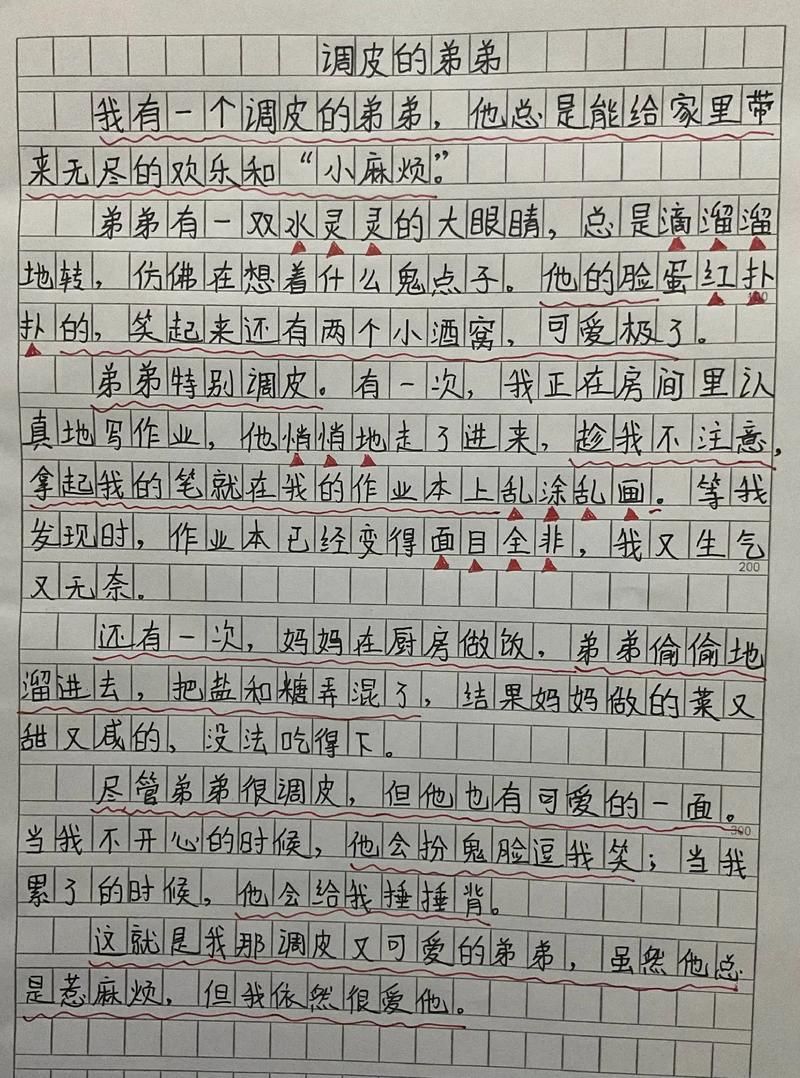 调皮的弟弟
我有一个调皮的弟弟，他总是能给家里带
来无尽的欢乐和“小麻烦”。
弟弟有一双水灵灵的大眼睛，总是滴溜溜
地转，仿佛在想着什么鬼点子。他的脸蛋红扑
100
扑的，笑起来还有两个小酒窝，可爱极了。
弟弟特别调皮。有一次，我正在房间里认
真地写作业，他悄悄地走了进来，趁我不注意，
拿起我的笔就在我的作业本上乱涂乱画。等我
发现时，作业本已经变得面目全非，我又生气
200
又无奈。
还有一次，妈妈在厨房做饭，弟弟偷偷地
溜进去，把盐和糖弄混了，结果妈妈做的菜又
甜又咸的，没法吃得下。
尽管弟弟很调皮，但他也有可爱的一面。
300
当我不开心的时候，他会扮鬼脸逗我笑；当我
累了的时候，他会给我捶捶背。
这就是我那调皮又可爱的弟弟，虽然他总
是惹麻烦，但我依然很爱他。